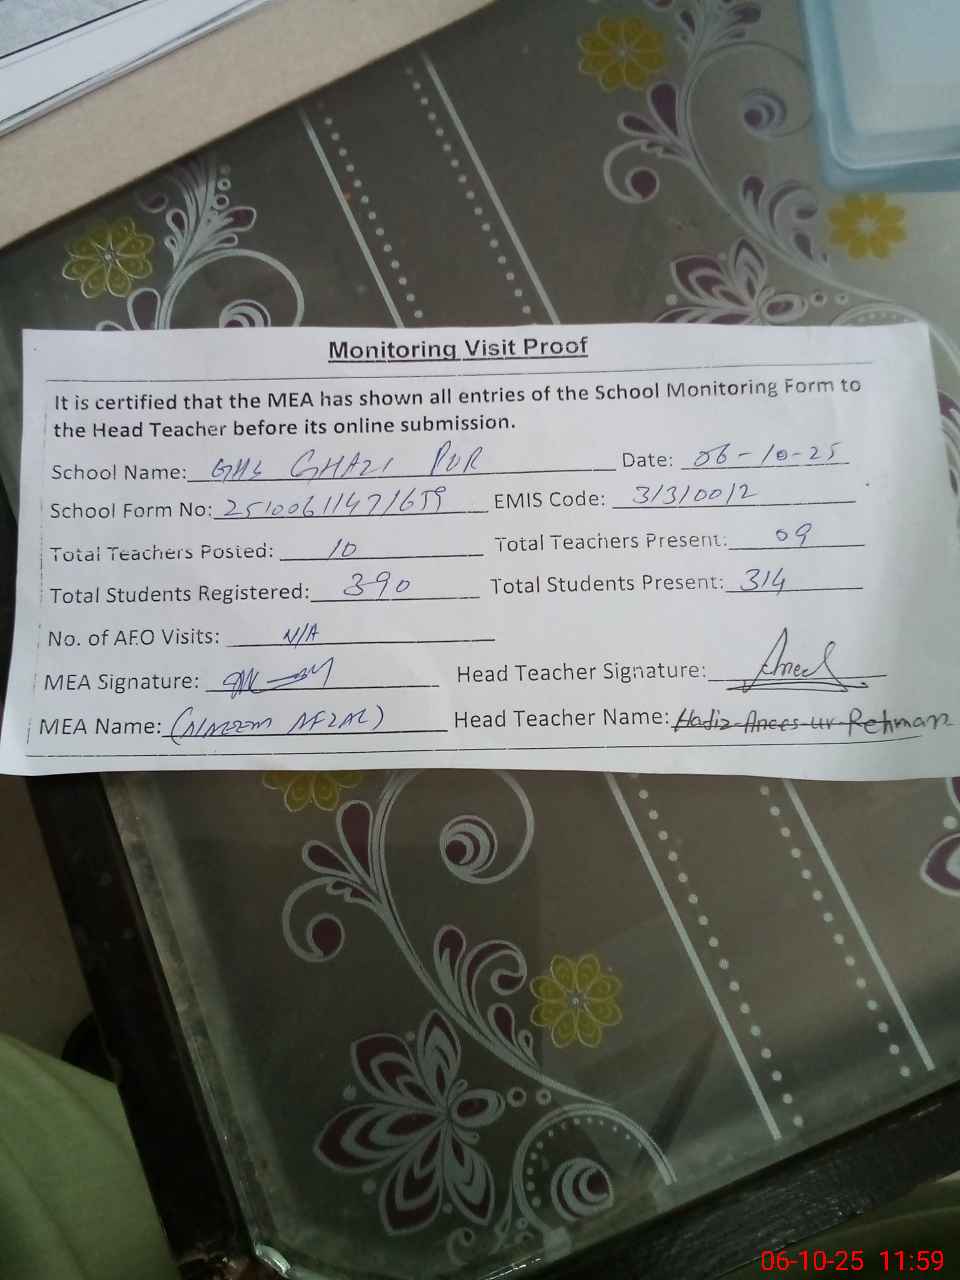 Monitoring Visit Proof
It is certified that the MEA has shown all entries of the School Monitoring Form to
the Head Teacher before its online submission.
School Name: GHS GHAZI PUR Date: 06-10-25
School Form No: 25100611471659 EMIS Code: 31310012
Total Teachers Posted: 10 Total Teachers Present: 09
Total Students Registered: 390 Total Students Present: 314
No. of AEO Visits: N/A
MEA Signature: Head Teacher Signature: Anees
MEA Name: (NAEEM AFZAL) Head Teacher Name: Hafiz Anees-ur-Rehman
06-10-25 11:59